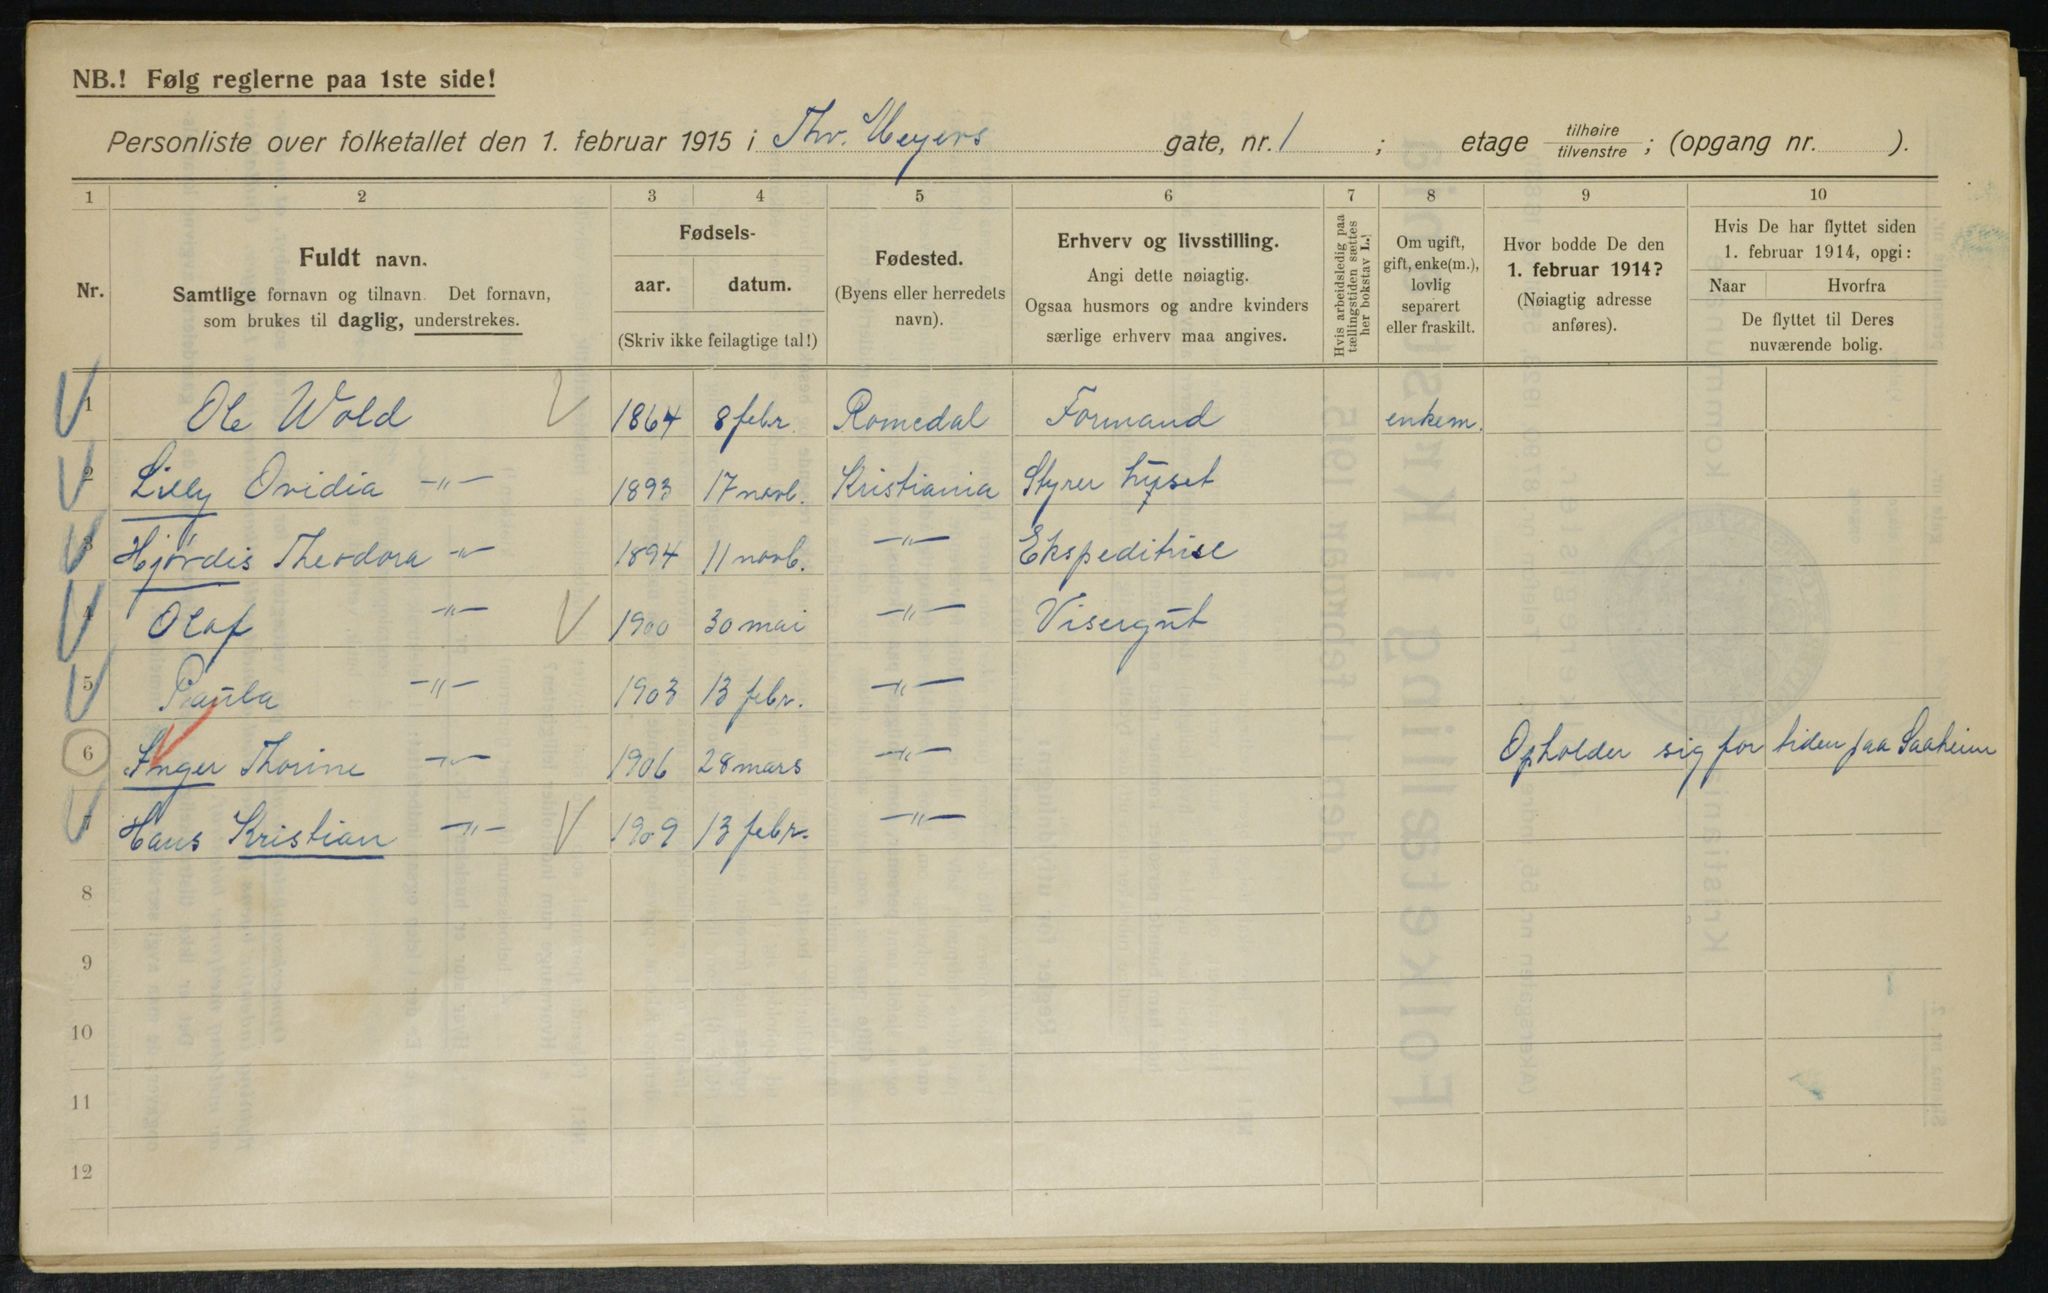 NB.! Følg reglerne paa 1ste side!
Personliste over folketallet den 1. februar 1915 i Thv. Meyers gate, nr. 1 ; etage tilhøire/tilvenstre; (opgang nr. ).
1 2 3 4 5 6 7 8 9 10
Nr.
Fuldt navn.
Samtlige fornavn og tilnavn. Det fornavn,
som brukes til daglig, understrekes.
Fødsels-
aar. datum.
(Skriv ikke feilagtige tal!)
Fødested.
(Byens eller herredets
navn).
Erhverv og livsstilling.
Angi dette nøiagtig.
Ogsaa husmors og andre kvinders
særlige erhverv maa angives.
Hvis arbeidsledig paa
tællingstiden sættes
her bokstav L.!
Om ugift,
gift, enke(m.),
lovlig
separert
eller fraskilt.
Hvor bodde De den
1. februar 1914?
(Nøiagtig adresse
anføres).
Hvis De har flyttet siden
1. februar 1914, opgi:
Naar Hvorfra
De flyttet til Deres
nuværende bolig.
1 Ole Wold 1864 8 febr. Romedal Formand enkem.
2 Lilly Ovidia -"- 1893 17 novb. Kristiania Styrer huset
3 Hjørdis Theodora -"- 1894 11 novb. -"- Ekspeditrise
4 Olaf -"- 1900 30 mai -"- Visergut
5 Paula -"- 1903 13 febr. -"-
6 Inger Thorine -"- 1906 28 mars -"- Opholder sig for tiden paa Saaheim
7 Hans Kristian -"- 1909 13 febr. -"-
8
9
10
11
12